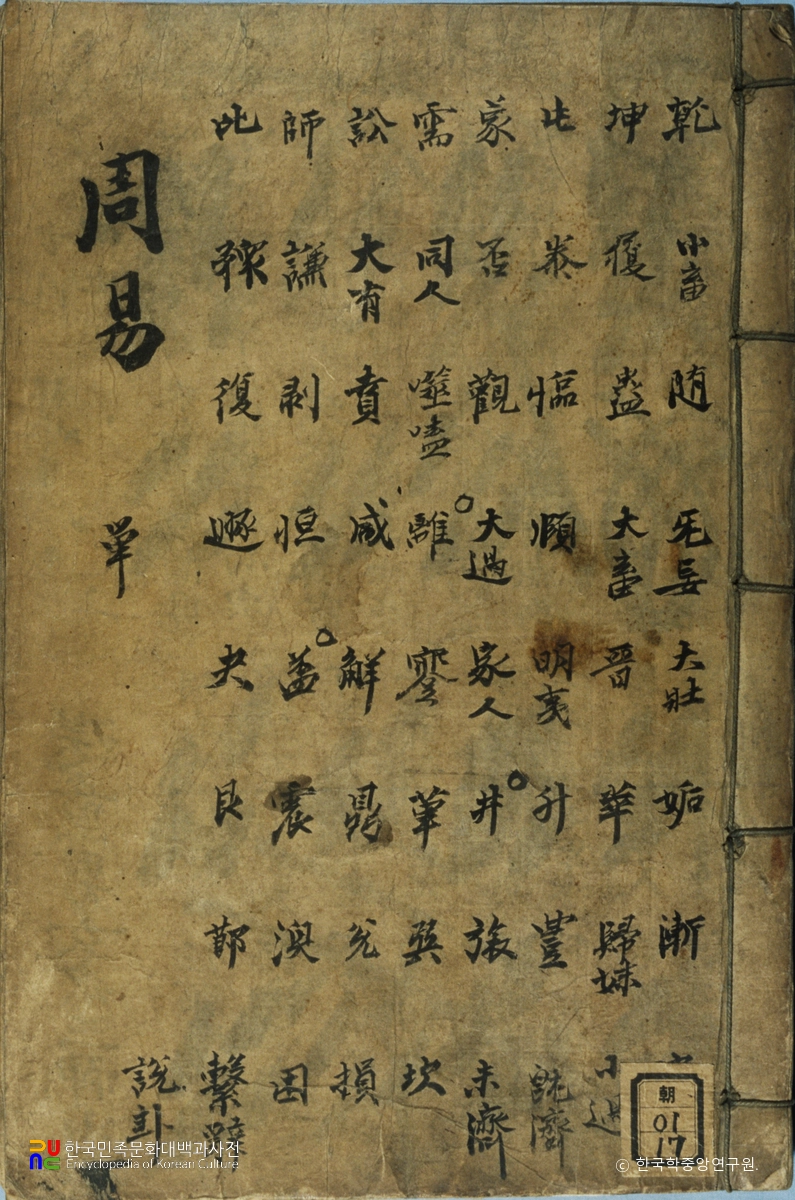 周易
單
乾 坤 屯 蒙 需 訟 師 比
小畜 履 泰 否 同人 大有 謙 豫
随 蠱 臨 觀 噬嗑 賁 剥 復
无妄 大畜 頤 大過 離 咸 恒 遯
大壯 晋 明夷 家人 蹇 解 益 夬
姤 萃 升 井 革 鼎 震 艮
漸 歸妹 豊 旅 巽 兌 渙 節
小過 旣濟 未濟 坎 損 困 繫辭 說卦
朝
01
17
한국민족문화대백과사전
Encyclopedia of Korean Culture
© 한국학중앙연구원.